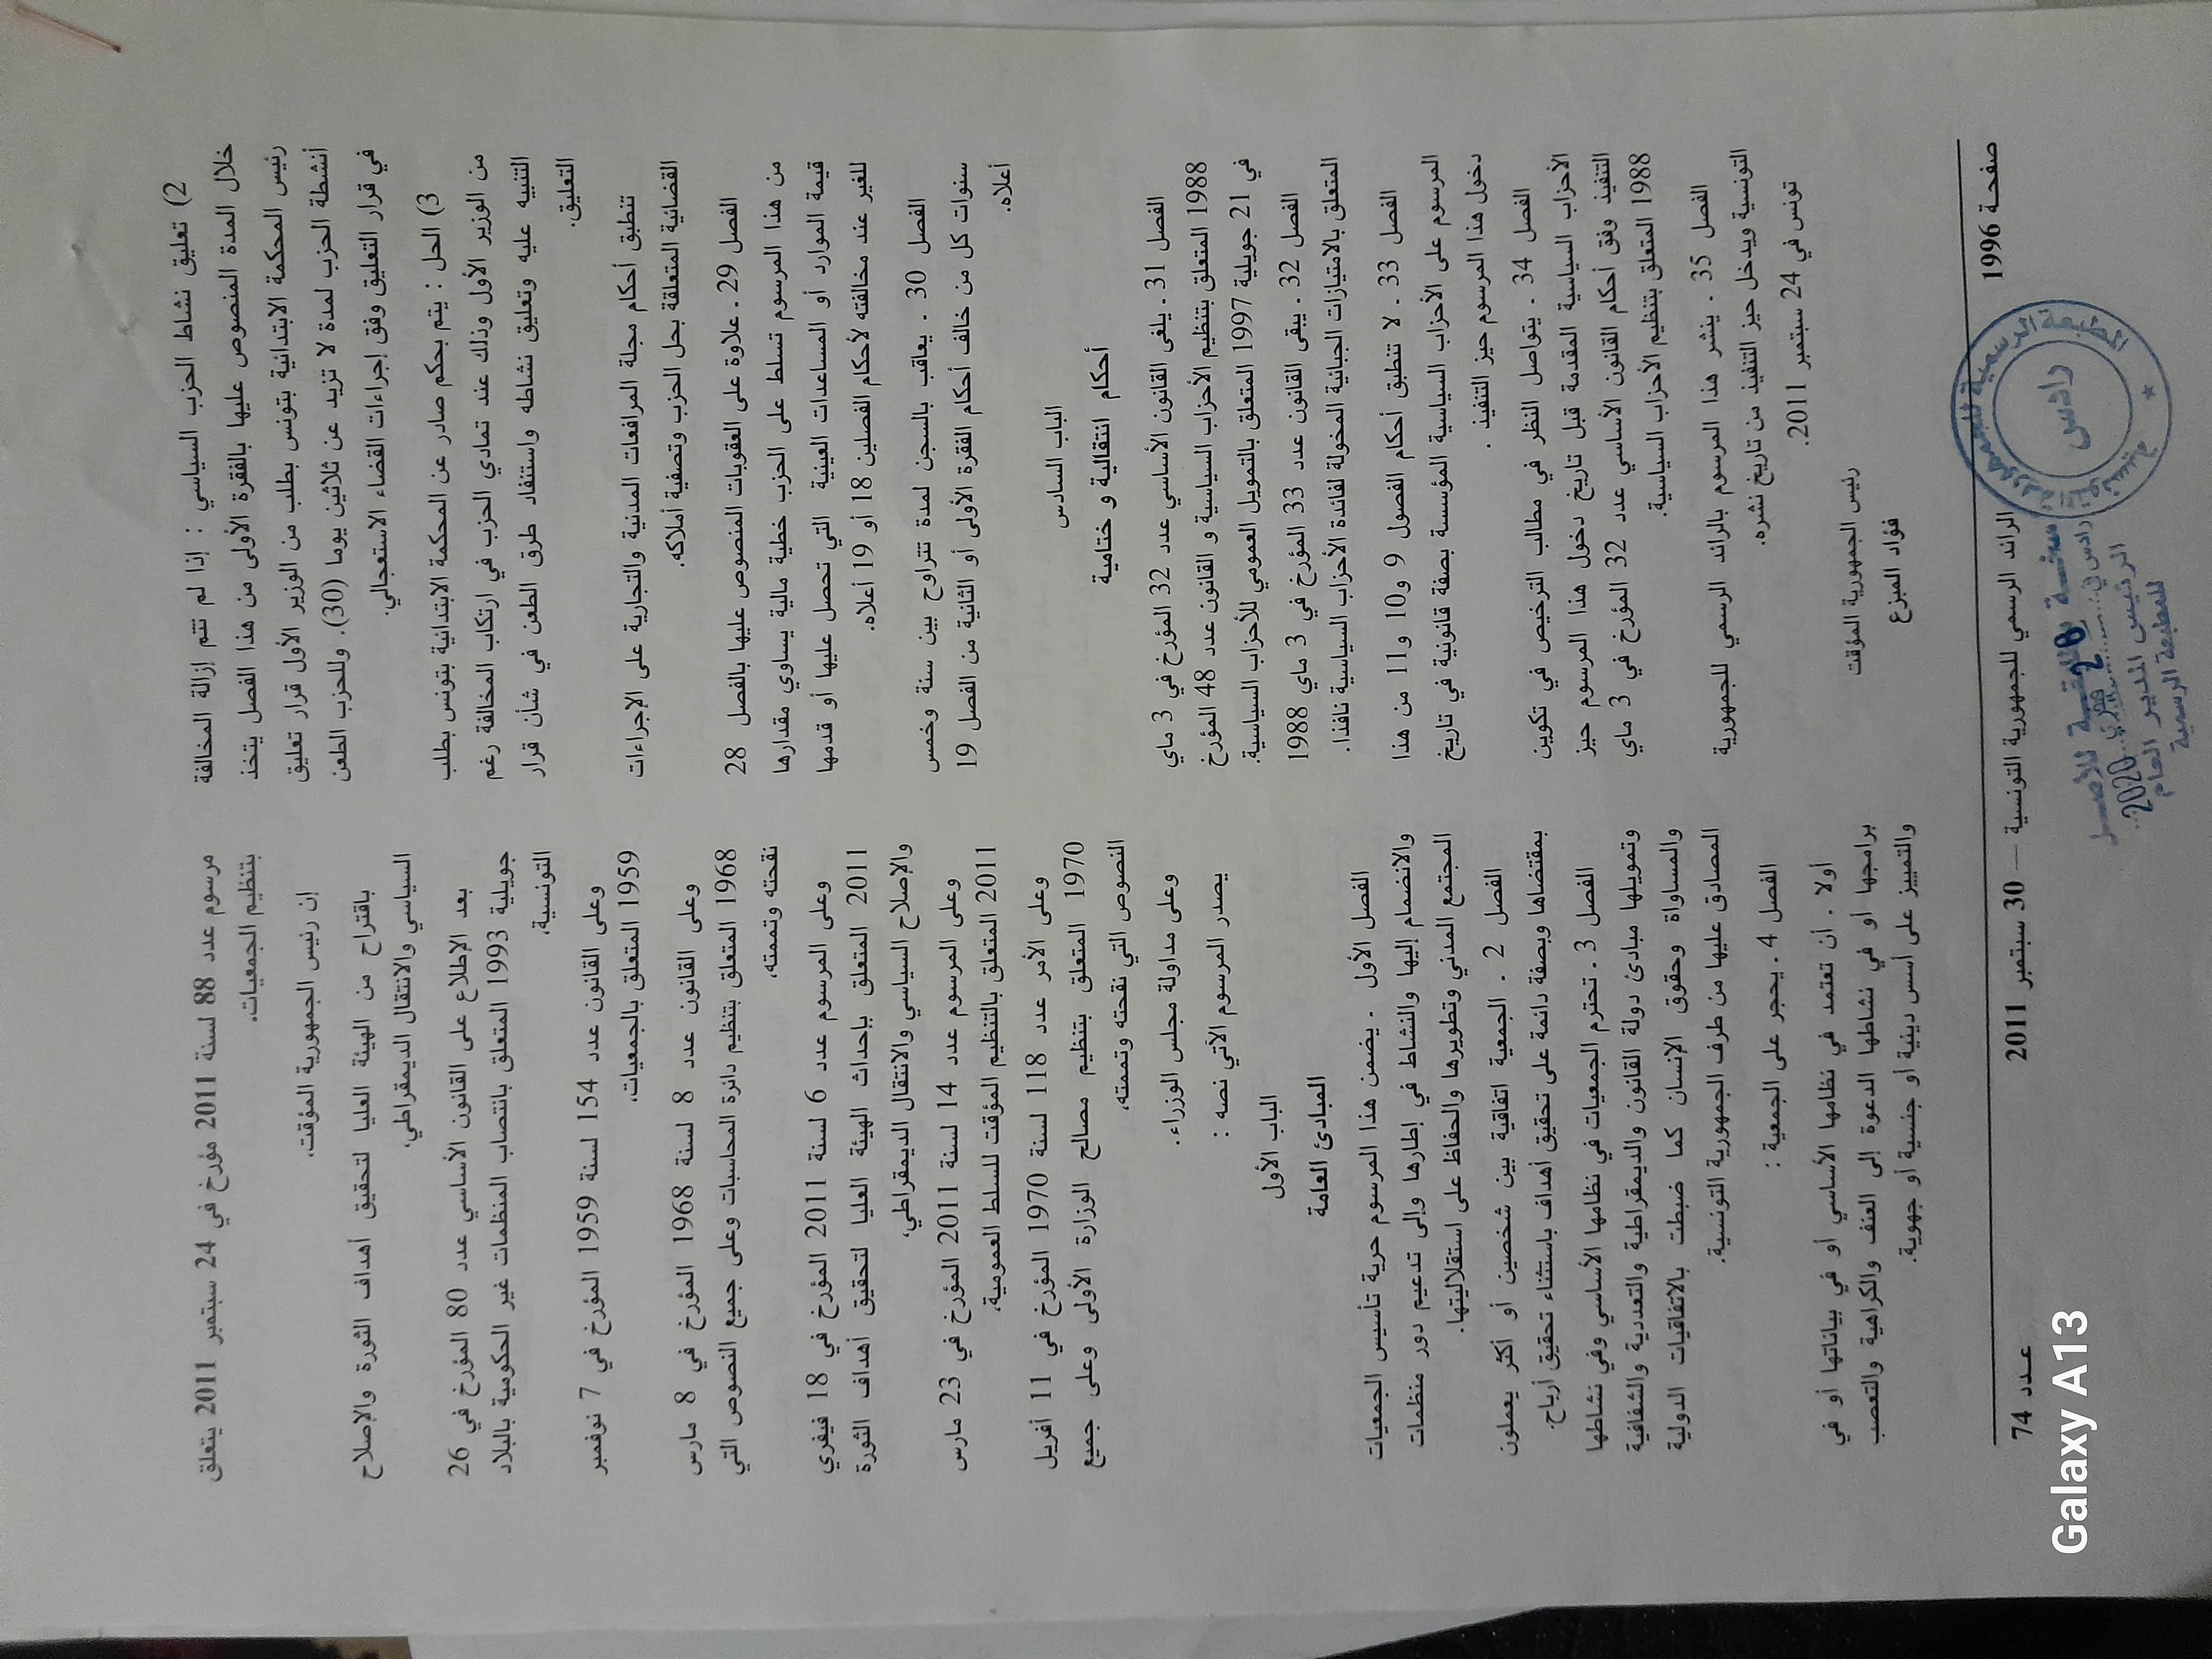 2) تعليق نشاط الحزب السياسي : إذا لم تتم إزالة المخالفة
خلال المدة المنصوص عليها بالفقرة الأولى من هذا الفصل يتخذ
رئيس المحكمة الابتدائية بتونس بطلب من الوزير الأول قرار تعليق
أنشطة الحزب لمدة لا تزيد عن ثلاثين يوما (30). وللحزب الطعن
في قرار التعليق وفق إجراءات القضاء الاستعجالي.
3) الحل : يتم بحكم صادر عن المحكمة الابتدائية بتونس بطلب
من الوزير الأول وذلك عند تمادي الحزب في ارتكاب المخالفة رغم
التنبيه عليه وتعليق نشاطه واستنفاد طرق الطعن في شأن قرار
التعليق.
تنطبق أحكام مجلة المرافعات المدنية والتجارية على الإجراءات
القضائية المتعلقة بحل الحزب وتصفية أملاكه.
الفصل 29 ـ علاوة على العقوبات المنصوص عليها بالفصل 28
من هذا المرسوم تسلط على الحزب خطية مالية يساوي مقدارها
قيمة الموارد أو المساعدات العينية التي تحصل عليها أو قدمها
للغير عند مخالفته لأحكام الفصلين 18 أو 19 أعلاه.
الفصل 30 ـ يعاقب بالسجن لمدة تتراوح بين سنة وخمس
سنوات كل من خالف أحكام الفقرة الأولى أو الثانية من الفصل 19
أعلاه.
الباب السادس
أحكام انتقالية و ختامية
الفصل 31 ـ يلغى القانون الأساسي عدد 32 المؤرخ في 3 ماي
1988 المتعلق بتنظيم الأحزاب السياسية و القانون عدد 48 المؤرخ
في 21 جويلية 1997 المتعلق بالتمويل العمومي للأحزاب السياسية.
الفصل 32 ـ يبقى القانون عدد 33 المؤرخ في 3 ماي 1988
المتعلق بالامتيازات الجبائية المخولة لفائدة الأحزاب السياسية نافذا.
الفصل 33 ـ لا تنطبق أحكام الفصول 9 و10 و11 من هذا
المرسوم على الأحزاب السياسية المؤسسة بصفة قانونية في تاريخ
دخول هذا المرسوم حيز التنفيذ .
الفصل 34 ـ يتواصل النظر في مطالب الترخيص في تكوين
الأحزاب السياسية المقدمة قبل تاريخ دخول هذا المرسوم حيز
التنفيذ وفق أحكام القانون الأساسي عدد 32 المؤرخ في 3 ماي
1988 المتعلق بتنظيم الأحزاب السياسية.
الفصل 35 ـ ينشر هذا المرسوم بالرائد الرسمي للجمهورية
التونسية ويدخل حيز التنفيذ من تاريخ نشره.
تونس في 24 سبتمبر 2011.
رئيس الجمهورية المؤقت
فؤاد المبزع
مرسوم عدد 88 لسنة 2011 مؤرخ في 24 سبتمبر 2011 يتعلق
بتنظيم الجمعيات.
إن رئيس الجمهورية المؤقت،
باقتراح من الهيئة العليا لتحقيق أهداف الثورة والإصلاح
السياسي والانتقال الديمقراطي،
بعد الإطلاع على القانون الأساسي عدد 80 المؤرخ في 26
جويلية 1993 المتعلق بانتصاب المنظمات غير الحكومية بالبلاد
التونسية،
وعلى القانون عدد 154 لسنة 1959 المؤرخ في 7 نوفمبر
1959 المتعلق بالجمعيات،
وعلى القانون عدد 8 لسنة 1968 المؤرخ في 8 مارس
1968 المتعلق بتنظيم دائرة المحاسبات وعلى جميع النصوص التي
نقحته وتممته،
وعلى المرسوم عدد 6 لسنة 2011 المؤرخ في 18 فيفري
2011 المتعلق بإحداث الهيئة العليا لتحقيق أهداف الثورة
والإصلاح السياسي والانتقال الديمقراطي،
وعلى المرسوم عدد 14 لسنة 2011 المؤرخ في 23 مارس
2011 المتعلق بالتنظيم المؤقت للسلط العمومية،
وعلى الأمر عدد 118 لسنة 1970 المؤرخ في 11 أفريل
1970 المتعلق بتنظيم مصالح الوزارة الأولى وعلى جميع
النصوص التي نقحته وتممته،
وعلى مداولة مجلس الوزراء.
يصدر المرسوم الآتي نصه :
الباب الأول
المبادئ العامة
الفصل الأول ـ يضمن هذا المرسوم حرية تأسيس الجمعيات
والانضمام إليها والنشاط في إطارها وإلى تدعيم دور منظمات
المجتمع المدني وتطويرها والحفاظ على استقلاليتها.
الفصل 2 ـ الجمعية اتفاقية بين شخصين أو أكثر يعملون
بمقتضاها وبصفة دائمة على تحقيق أهداف باستثناء تحقيق أرباح.
الفصل 3 ـ تحترم الجمعيات في نظامها الأساسي وفي نشاطها
وتمويلها مبادئ دولة القانون والديمقراطية والتعددية والشفافية
والمساواة وحقوق الإنسان كما ضبطت بالاتفاقيات الدولية
المصادق عليها من طرف الجمهورية التونسية.
الفصل 4 ـ يحجر على الجمعية :
أولا ـ أن تعتمد في نظامها الأساسي أو في بياناتها أو في
برامجها أو في نشاطها الدعوة إلى العنف والكراهية والتعصب
والتمييز على أسس دينية أو جنسية أو جهوية.
صفحـة 1996
الرائد الرسمي للجمهورية التونسية — 30 سبتمبر 2011
عـدد 74
رادس
رادس في 20 فيفري 2020
الرئيس المدير العام
للمطبعة الرسمية
Galaxy A13